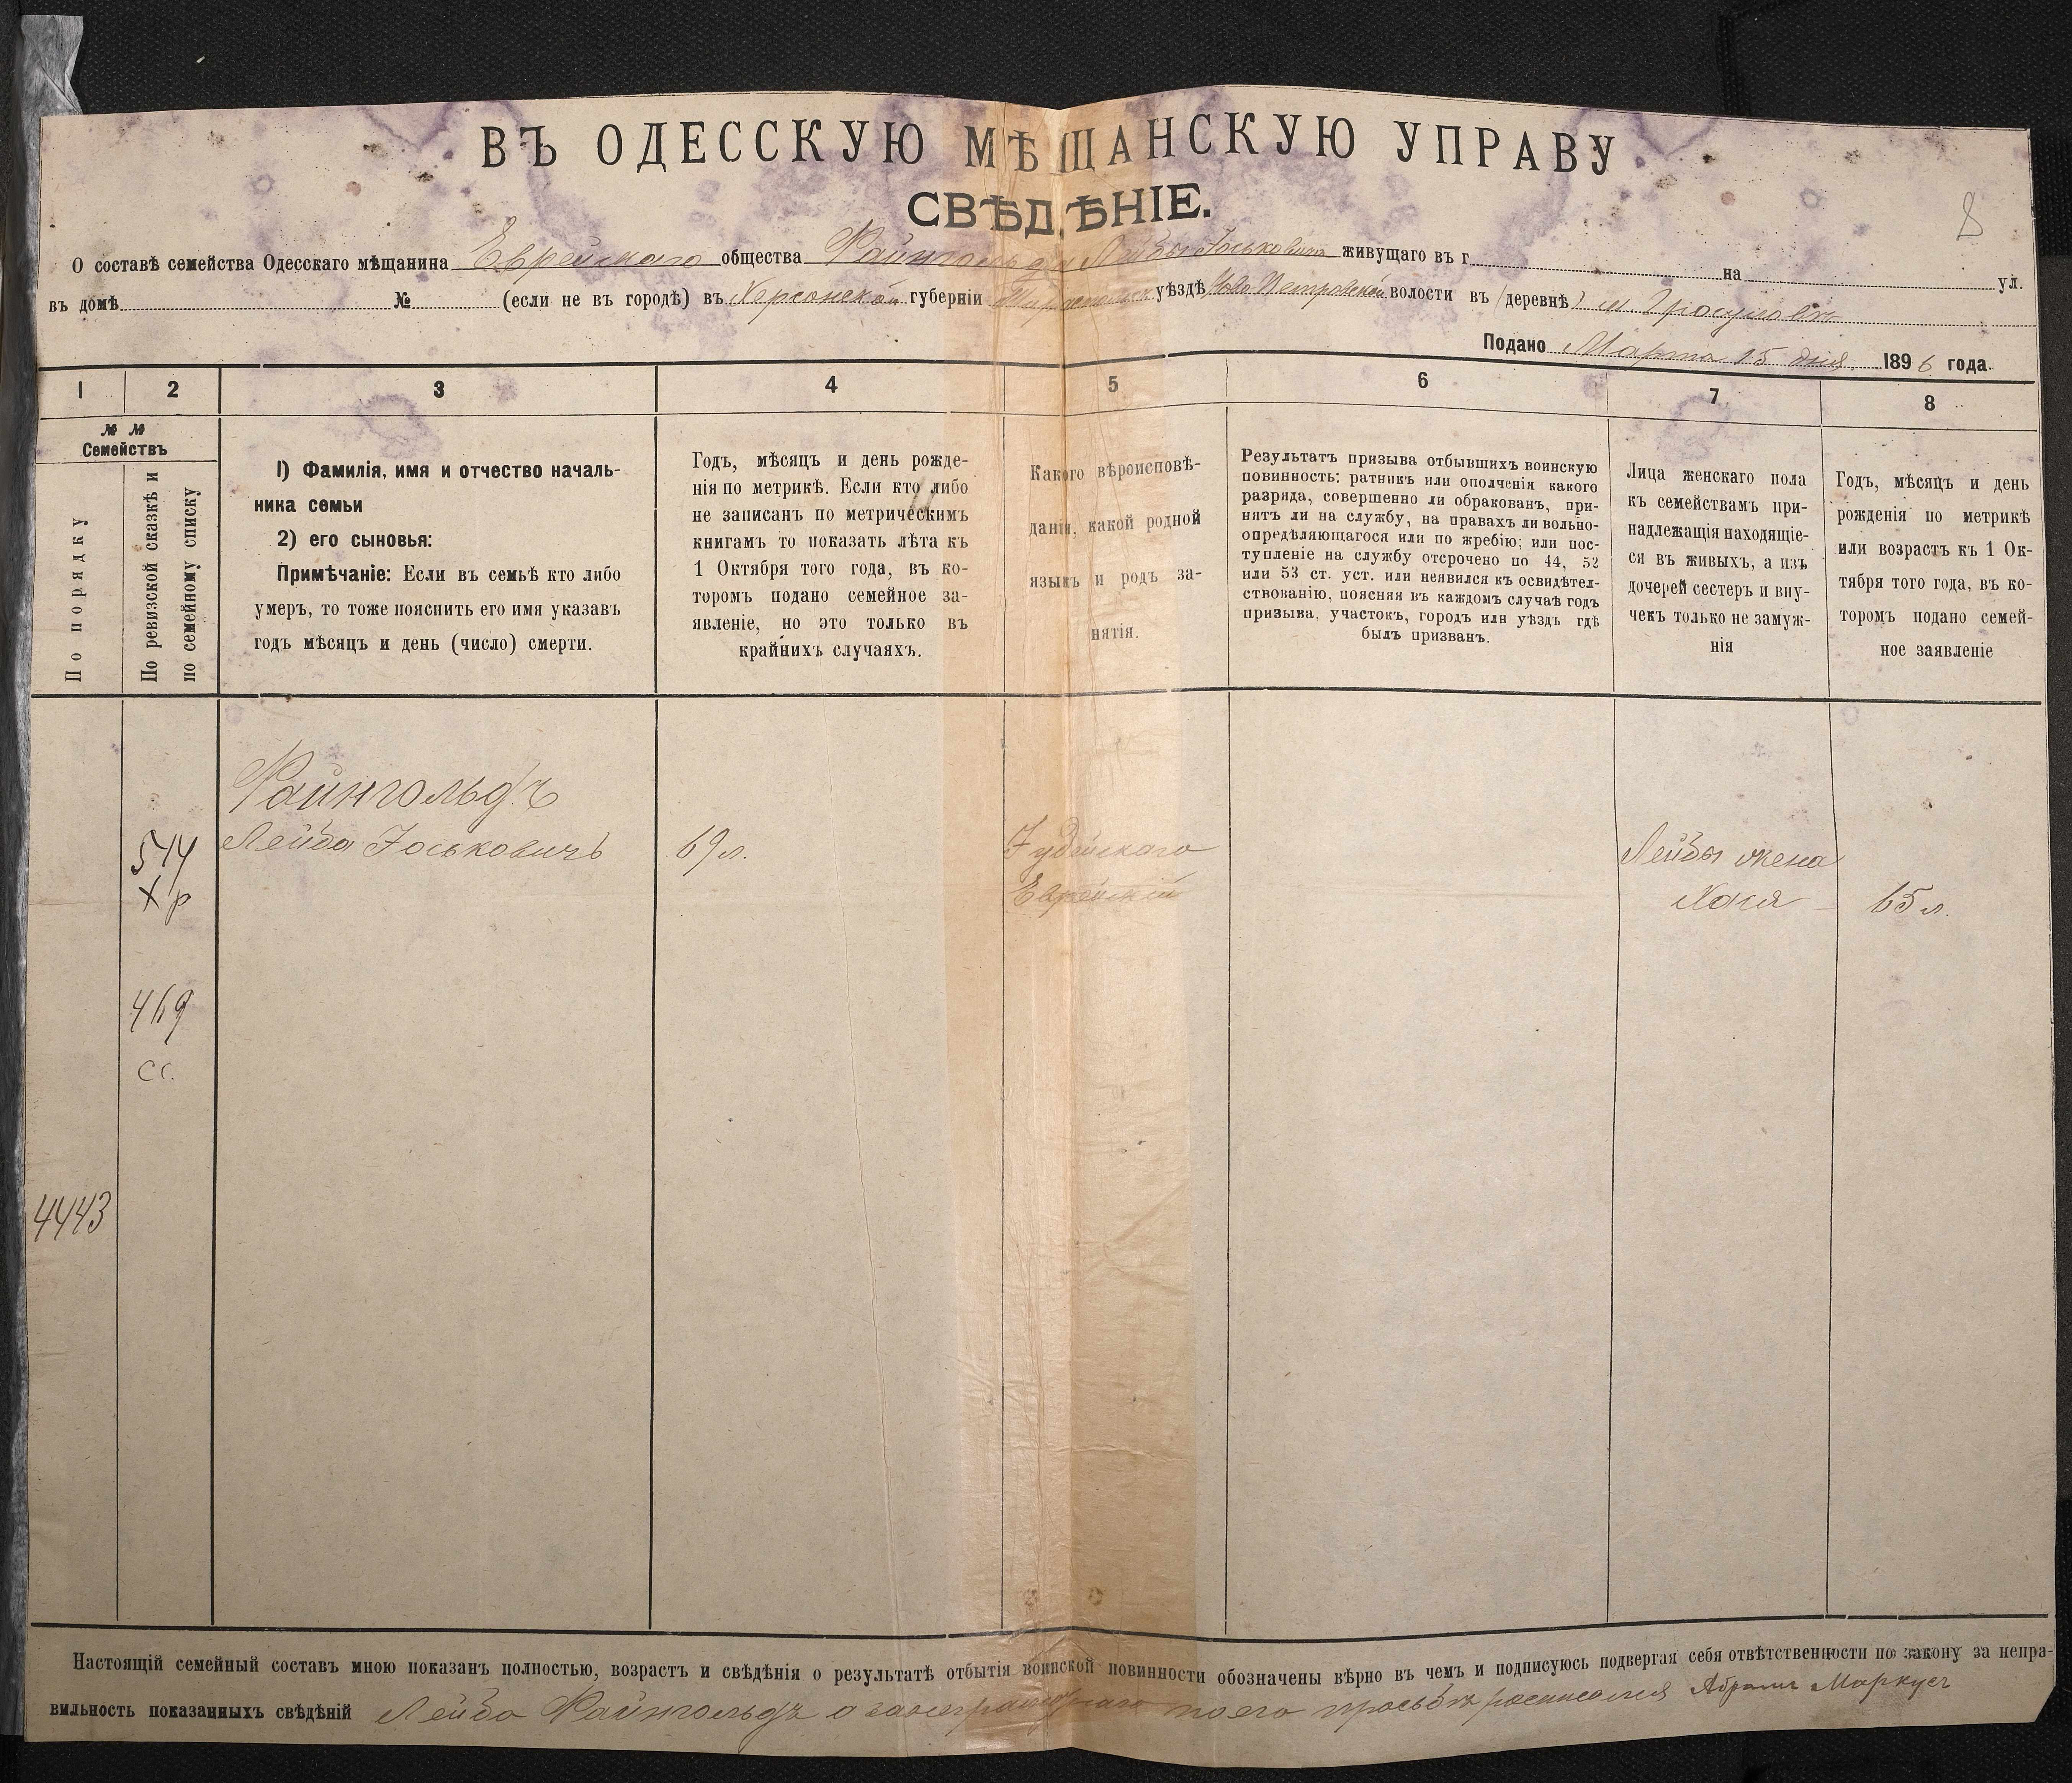 ВЪ ОДЕССКУЮ МѢЩАНСКУЮ УПРАВУ
СВѢДѢНІЕ.
8
О составѣ семейства Одесскаго мѣщанина Еврейскаго общества Файнгольда Лейбы Іоськовича живущаго въ г на ул.
въ домѣ № (если не въ городѣ) въ Херсонской губерніи Тираспольск уѣздѣ Ново Петровской волости въ (деревнѣ) м. Гросулово
Подано Марта 15 дня 1896 года.
1 2 3 4 5 6 7 8
№ №
Семействъ
По порядку
По ревизской сказкѣ и
по семейному списку
1) Фамилія, имя и отчество началь-
ника семьи
2) его сыновья:
Примѣчаніе: Если въ семьѣ кто либо
умеръ, то тоже пояснить его имя указавъ
годъ мѣсяцъ и день (число) смерти.
Годъ, мѣсяцъ и день рожде-
нія по метрикѣ. Если кто либо
не записанъ по метрическимъ
книгамъ то показать лѣта къ
1 Октября того года, въ ко-
торомъ подано семейное за-
явленіе, но это только въ
крайнихъ случаяхъ.
Какого вѣроисповѣ-
данія, какой родной
языкъ и родъ за-
нятія.
Результатъ призыва отбывшихъ воинскую
повинность: ратникъ или ополченія какого
разряда, совершенно ли обракованъ, при-
нятъ ли на службу, на правахъ ли вольно-
опредѣляющагося или по жребію; или пос-
тупленіе на службу отсрочено по 44, 52
или 53 ст. уст. или неявился къ освидѣтел-
ствованію, поясняя въ каждомъ случаѣ годъ
призыва, участокъ, городъ или уѣздъ гдѣ
былъ призванъ.
Лица женскаго пола
къ семействамъ при-
надлежащія находящіе-
ся въ живыхъ, а изъ
дочерей сестеръ и вну-
чекъ только не замуж-
нія
Годъ, мѣсяцъ и день
рожденія по метрикѣ
или возрастъ къ 1 Ок-
тября того года, въ ко-
торомъ подано семей-
ное заявленіе
Файнгольдъ
544 Лейба Іоськовичъ 69 л. Іудейскаго Лейбы жена
хр Еврейскій Хася 65 л.
469
сс.
4443
Настоящій семейный составъ мною показанъ полностью, возрастъ и свѣдѣнія о результатѣ отбытія воинской повинности обозначены вѣрно въ чемъ и подписуюсь подвергая себя отвѣтственности по закону за непра-
вильность показанныхъ свѣдѣній Лейба Файнгольдъ а за неграмотнаго по его просьбѣ росписался Абрамъ Маркусъ